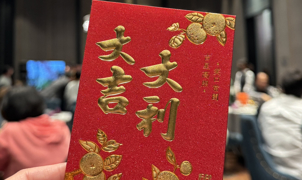 大吉
大利